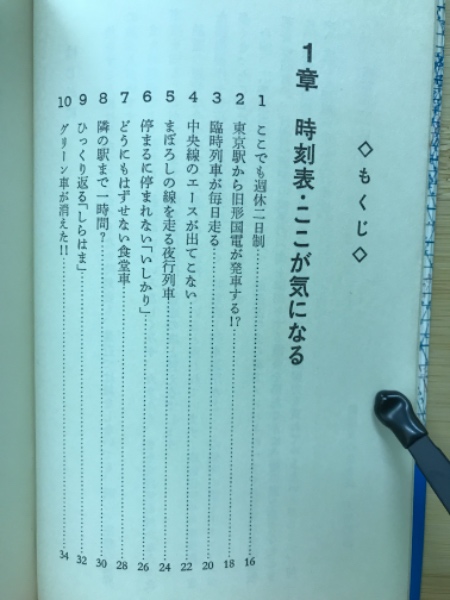 ◇もくじ◇
1章 時刻表・ここが気になる
1 ここでも週休二日制 16
2 東京駅から旧形国電が発車する!? 18
3 臨時列車が毎日走る 20
4 中央線のエースが出てこない 22
5 まぼろしの線を走る夜行列車 24
6 停まるに停まれない「いしかり」 26
7 どうにもはずせない食堂車 28
8 隣の駅まで一時間? 30
9 ひっくり返る「しらはま」 32
10 グリーン車が消えた!! 34